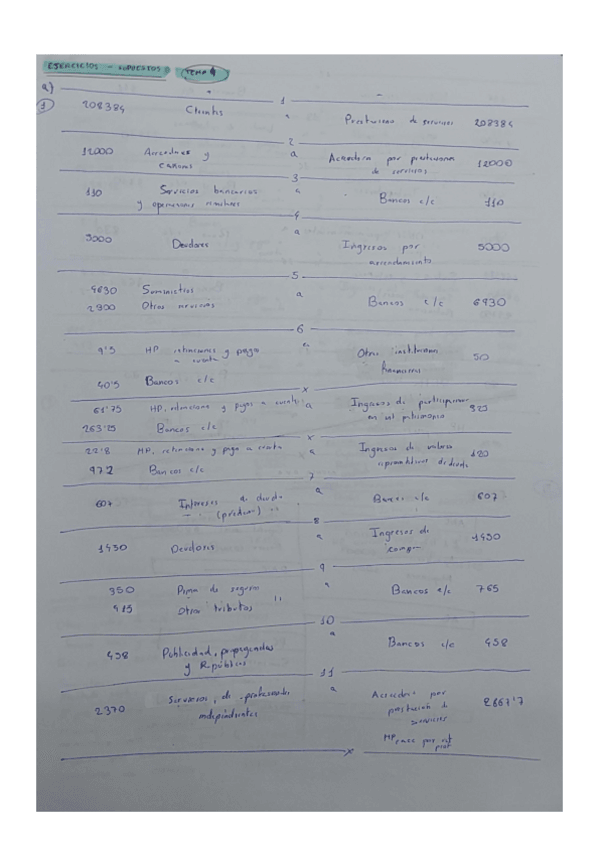 EJERCICIOS - SUPUESTOS TEMA 4
a)
1
1
208384 Clientes a Prestación de servicios 208384
2
12000 Arrendam. y a Acreedores por prestaciones 12000
cánones de servicios
3
110 Servicios bancarios a Bancos c/c 110
y operaciones similares
4
5000 Deudores a Ingresos por 5000
arrendamiento
5
4630 Suministros a Bancos c/c 6930
2300 Otros servicios
6
9'5 HP retenciones y pagos a Otras instituciones 50
a cuenta financieras
40'5 Bancos c/c
x
61'75 HP, retenciones y pagos a cuenta a Ingresos de participaciones 325
263'25 Bancos c/c en el patrimonio
x
22'8 HP, retenciones y pago a cuenta a Ingresos de valores 120
97'2 Bancos c/c representativos de deuda
7
607 Intereses de deuda a Bancos c/c 607
8
1430 Deudores a Ingresos de 1430
9
350 Prima de seguros a Bancos c/c 765
415 Otros tributos
10
458 Publicidad, propaganda a Bancos c/c 458
y R. públicas
11
2370 Servicios de profesionales a Acreedores por 2867'7
independientes prestación de
servicios
x